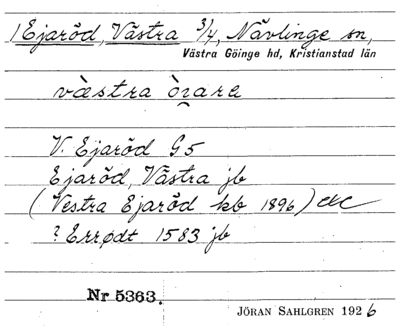 Ejaröd, Västra 3/4, Nävlinge sn,
Västra Göinge hd, Kristianstad län
væ̀stra
V. Ejaröd G5
Ejaröd, Västra jb
(Vestra Ejaröd kb 1896) etc
? Errødt 1583 jb
Nr 5363.
JÖRAN SAHLGREN 1926